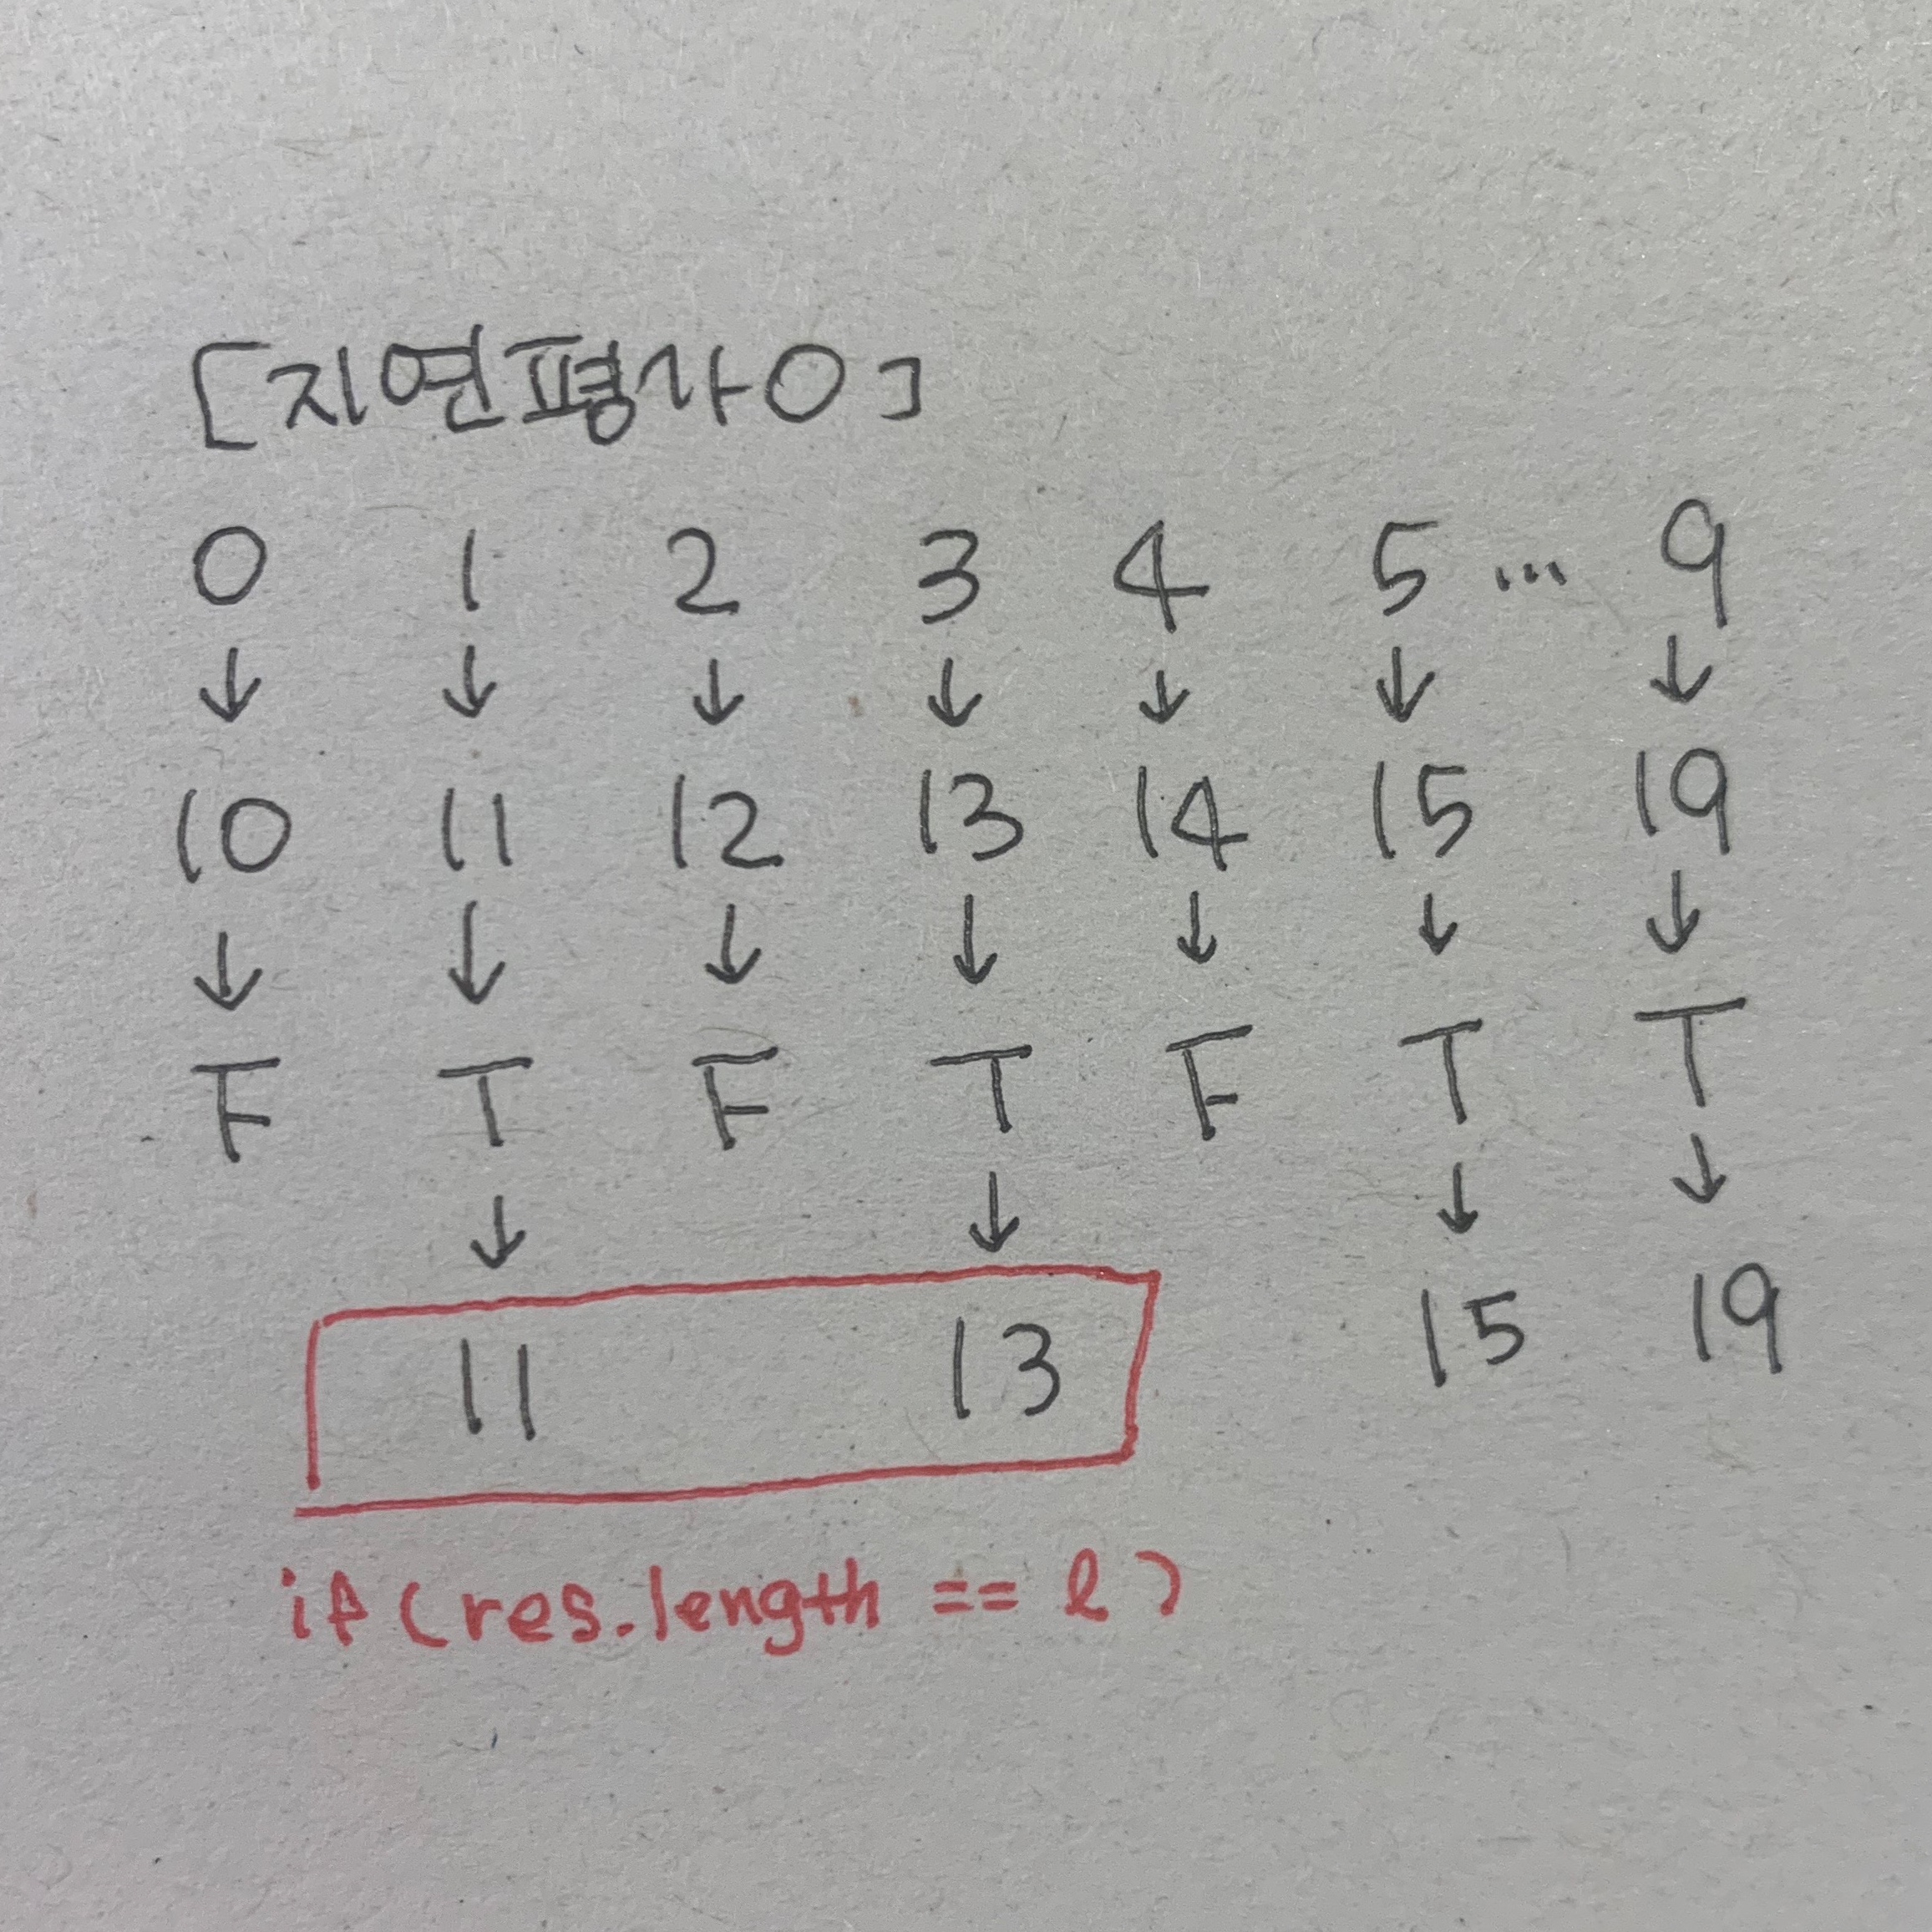 [지연평가O]
0 1 2 3 4 5 ... 9
↓ ↓ ↓ ↓ ↓ ↓ ↓
10 11 12 13 14 15 19
↓ ↓ ↓ ↓ ↓ ↓ ↓
F T F T F T T
↓ ↓ ↓ ↓
11 13 15 19
if (res.length == l)